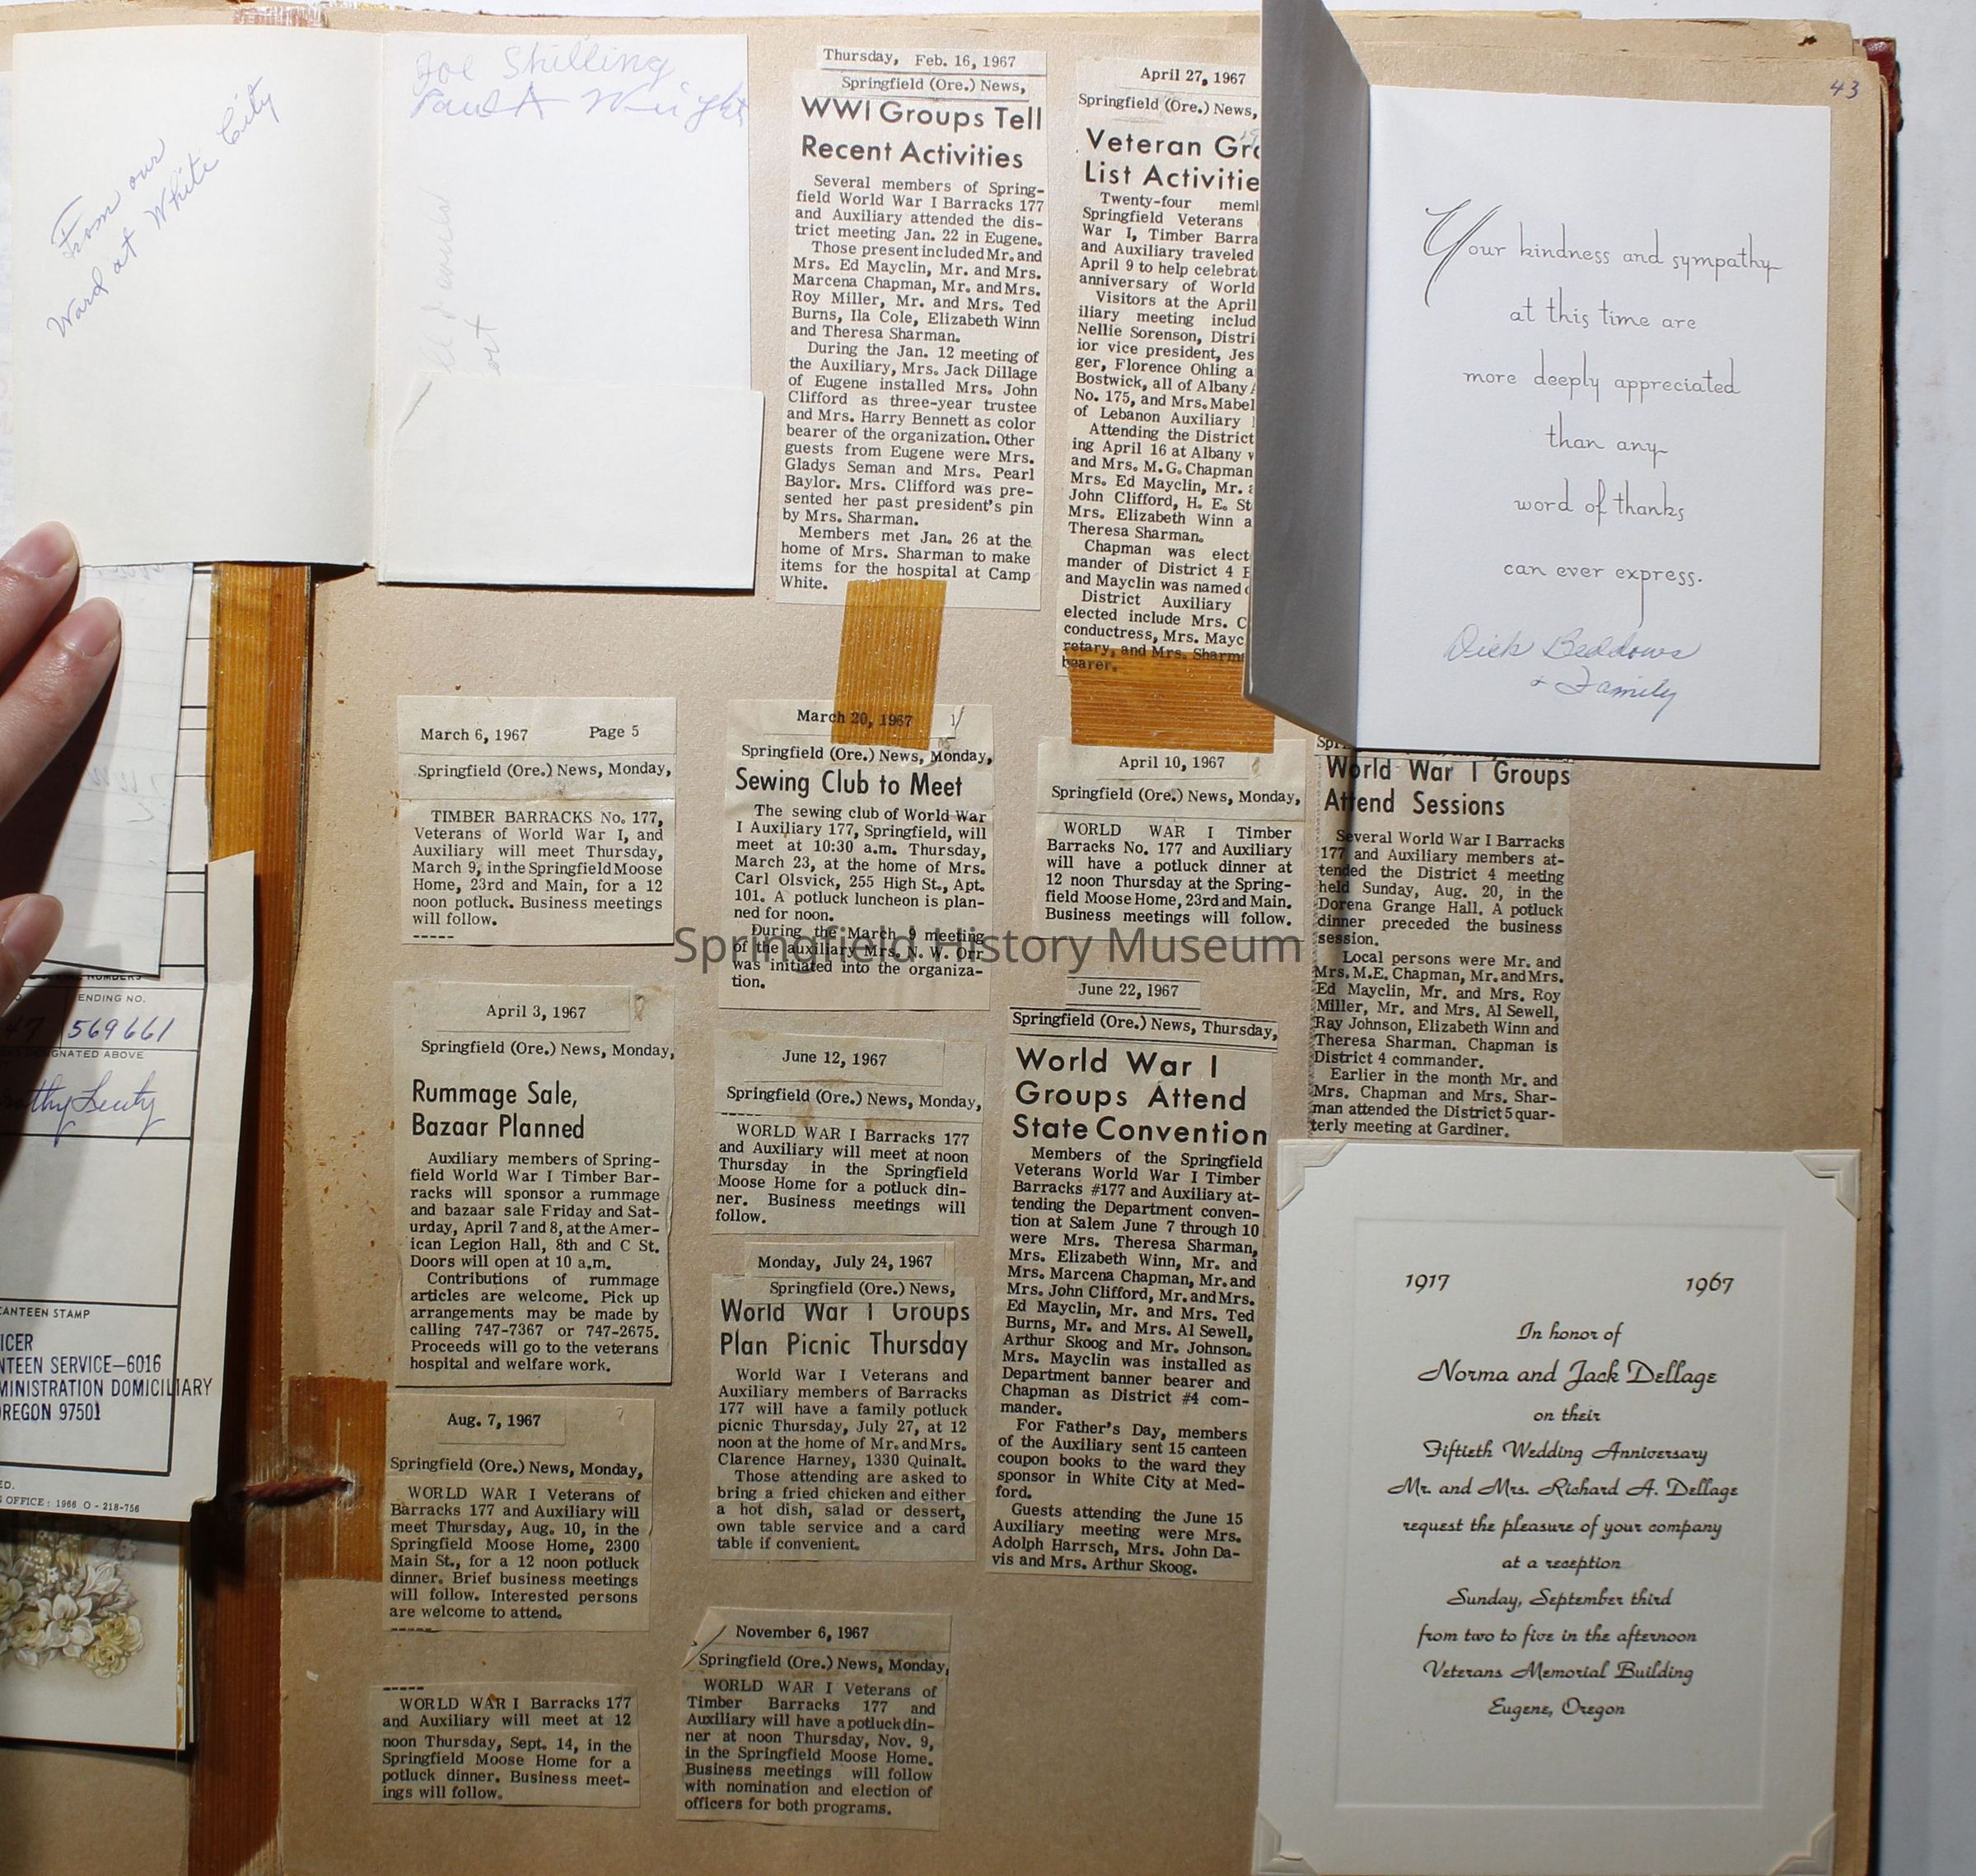 From our
Ward at White City
Joe Shilling
Paul A Wright
Thursday, Feb. 16, 1967
Springfield (Ore.) News,
WWI Groups Tell
Recent Activities
Several members of Spring-
field World War I Barracks 177
and Auxiliary attended the dis-
trict meeting Jan. 22 in Eugene.
Those present included Mr. and
Mrs. Ed Mayclin, Mr. and Mrs.
Marcena Chapman, Mr. and Mrs.
Roy Miller, Mr. and Mrs. Ted
Burns, Ila Cole, Elizabeth Winn
and Theresa Sharman.
During the Jan. 12 meeting of
the Auxiliary, Mrs. Jack Dillage
of Eugene installed Mrs. John
Clifford as three-year trustee
and Mrs. Harry Bennett as color
bearer of the organization. Other
guests from Eugene were Mrs.
Gladys Seman and Mrs. Pearl
Baylor. Mrs. Clifford was pre-
sented her past president's pin
by Mrs. Sharman.
Members met Jan. 26 at the
home of Mrs. Sharman to make
items for the hospital at Camp
White.
April 27, 1967
Springfield (Ore.) News,
Veteran Gro
List Activitie
Twenty-four meml
Springfield Veterans
War I, Timber Barra
and Auxiliary traveled
April 9 to help celebrat
anniversary of World
Visitors at the April
iliary meeting includ
Nellie Sorenson, Distri
ior vice president, Jes
ger, Florence Ohling a
Bostwick, all of Albany
No. 175, and Mrs. Mabel
of Lebanon Auxiliary
Attending the District
ing April 16 at Albany
and Mrs. M.G. Chapman
Mrs. Ed Mayclin, Mr.
John Clifford, H. E. St
Mrs. Elizabeth Winn a
Theresa Sharman.
Chapman was elect
mander of District 4
and Mayclin was named
District Auxiliary
elected include Mrs. C
conductress, Mrs. Mayc
retary, and Mrs. Sharm
bearer.
43
Your kindness and sympathy
at this time are
more deeply appreciated
than any
word of thanks
can ever express.
Dick Beddows
+ Family
March 6, 1967 Page 5
Springfield (Ore.) News, Monday,
TIMBER BARRACKS No. 177,
Veterans of World War I, and
Auxiliary will meet Thursday,
March 9, in the Springfield Moose
Home, 23rd and Main, for a 12
noon potluck. Business meetings
will follow.
March 20, 1967
Springfield (Ore.) News, Monday,
Sewing Club to Meet
The sewing club of World War
I Auxiliary 177, Springfield, will
meet at 10:30 a.m. Thursday,
March 23, at the home of Mrs.
Carl Olsvick, 255 High St., Apt.
101. A potluck luncheon is plan-
ned for noon.
During the March 9 meeting
of the auxiliary Mrs. N. W. Orr
was initiated into the organiza-
tion.
April 10, 1967
Springfield (Ore.) News, Monday,
WORLD WAR I Timber
Barracks No. 177 and Auxiliary
will have a potluck dinner at
12 noon Thursday at the Spring-
field Moose Home, 23rd and Main.
Business meetings will follow.
World War I Groups
Attend Sessions
Several World War I Barracks
177 and Auxiliary members at-
tended the District 4 meeting
held Sunday, Aug. 20, in the
Dorena Grange Hall. A potluck
dinner preceded the business
session.
Local persons were Mr. and
Mrs. M.E. Chapman, Mr. and Mrs.
Ed Mayclin, Mr. and Mrs. Roy
Miller, Mr. and Mrs. Al Sewell,
Ray Johnson, Elizabeth Winn and
Theresa Sharman. Chapman is
District 4 commander.
Earlier in the month Mr. and
Mrs. Chapman and Mrs. Shar-
man attended the District 5 quar-
terly meeting at Gardiner.
Springfield History Museum
April 3, 1967
Springfield (Ore.) News, Monday,
Rummage Sale,
Bazaar Planned
Auxiliary members of Spring-
field World War I Timber Bar-
racks will sponsor a rummage
and bazaar sale Friday and Sat-
urday, April 7 and 8, at the Amer-
ican Legion Hall, 8th and C St.
Doors will open at 10 a.m.
Contributions of rummage
articles are welcome. Pick up
arrangements may be made by
calling 747-7367 or 747-2675.
Proceeds will go to the veterans
hospital and welfare work.
June 12, 1967
Springfield (Ore.) News, Monday,
WORLD WAR I Barracks 177
and Auxiliary will meet at noon
Thursday in the Springfield
Moose Home for a potluck din-
ner. Business meetings will
follow.
June 22, 1967
Springfield (Ore.) News, Thursday,
World War I
Groups Attend
State Convention
Members of the Springfield
Veterans World War I Timber
Barracks #177 and Auxiliary at-
tending the Department conven-
tion at Salem June 7 through 10
were Mrs. Theresa Sharman,
Mrs. Elizabeth Winn, Mr. and
Mrs. Marcena Chapman, Mr. and
Mrs. John Clifford, Mr. and Mrs.
Ed Mayclin, Mr. and Mrs. Ted
Burns, Mr. and Mrs. Al Sewell,
Arthur Skoog and Mr. Johnson.
Mrs. Mayclin was installed as
Department banner bearer and
Chapman as District #4 com-
mander.
For Father's Day, members
of the Auxiliary sent 15 canteen
coupon books to the ward they
sponsor in White City at Med-
ford.
Guests attending the June 15
Auxiliary meeting were Mrs.
Adolph Harrsch, Mrs. John Da-
vis and Mrs. Arthur Skoog.
Monday, July 24, 1967
Springfield (Ore.) News,
World War I Groups
Plan Picnic Thursday
World War I Veterans and
Auxiliary members of Barracks
177 will have a family potluck
picnic Thursday, July 27, at 12
noon at the home of Mr. and Mrs.
Clarence Harney, 1330 Quinalt.
Those attending are asked to
bring a fried chicken and either
a hot dish, salad or dessert,
own table service and a card
table if convenient.
Aug. 7, 1967
Springfield (Ore.) News, Monday,
WORLD WAR I Veterans of
Barracks 177 and Auxiliary will
meet Thursday, Aug. 10, in the
Springfield Moose Home, 2300
Main St., for a 12 noon potluck
dinner. Brief business meetings
will follow. Interested persons
are welcome to attend.
WORLD WAR I Barracks 177
and Auxiliary will meet at 12
noon Thursday, Sept. 14, in the
Springfield Moose Home for a
potluck dinner. Business meet-
ings will follow.
November 6, 1967
Springfield (Ore.) News, Monday,
WORLD WAR I Veterans of
Timber Barracks 177 and
Auxiliary will have a potluck din-
ner at noon Thursday, Nov. 9,
in the Springfield Moose Home.
Business meetings will follow
with nomination and election of
officers for both programs.
1917 1967
In honor of
Norma and Jack Dellage
on their
Fiftieth Wedding Anniversary
Mr. and Mrs. Richard A. Dellage
request the pleasure of your company
at a reception
Sunday, September third
from two to five in the afternoon
Veterans Memorial Building
Eugene, Oregon
NUMBERS
ENDING NO.
47 569661
GNATED ABOVE
CANTEEN STAMP
ICER
NTEEN SERVICE-6016
MINISTRATION DOMICILIARY
OREGON 97501
ED.
OFFICE: 1966 O-218-756